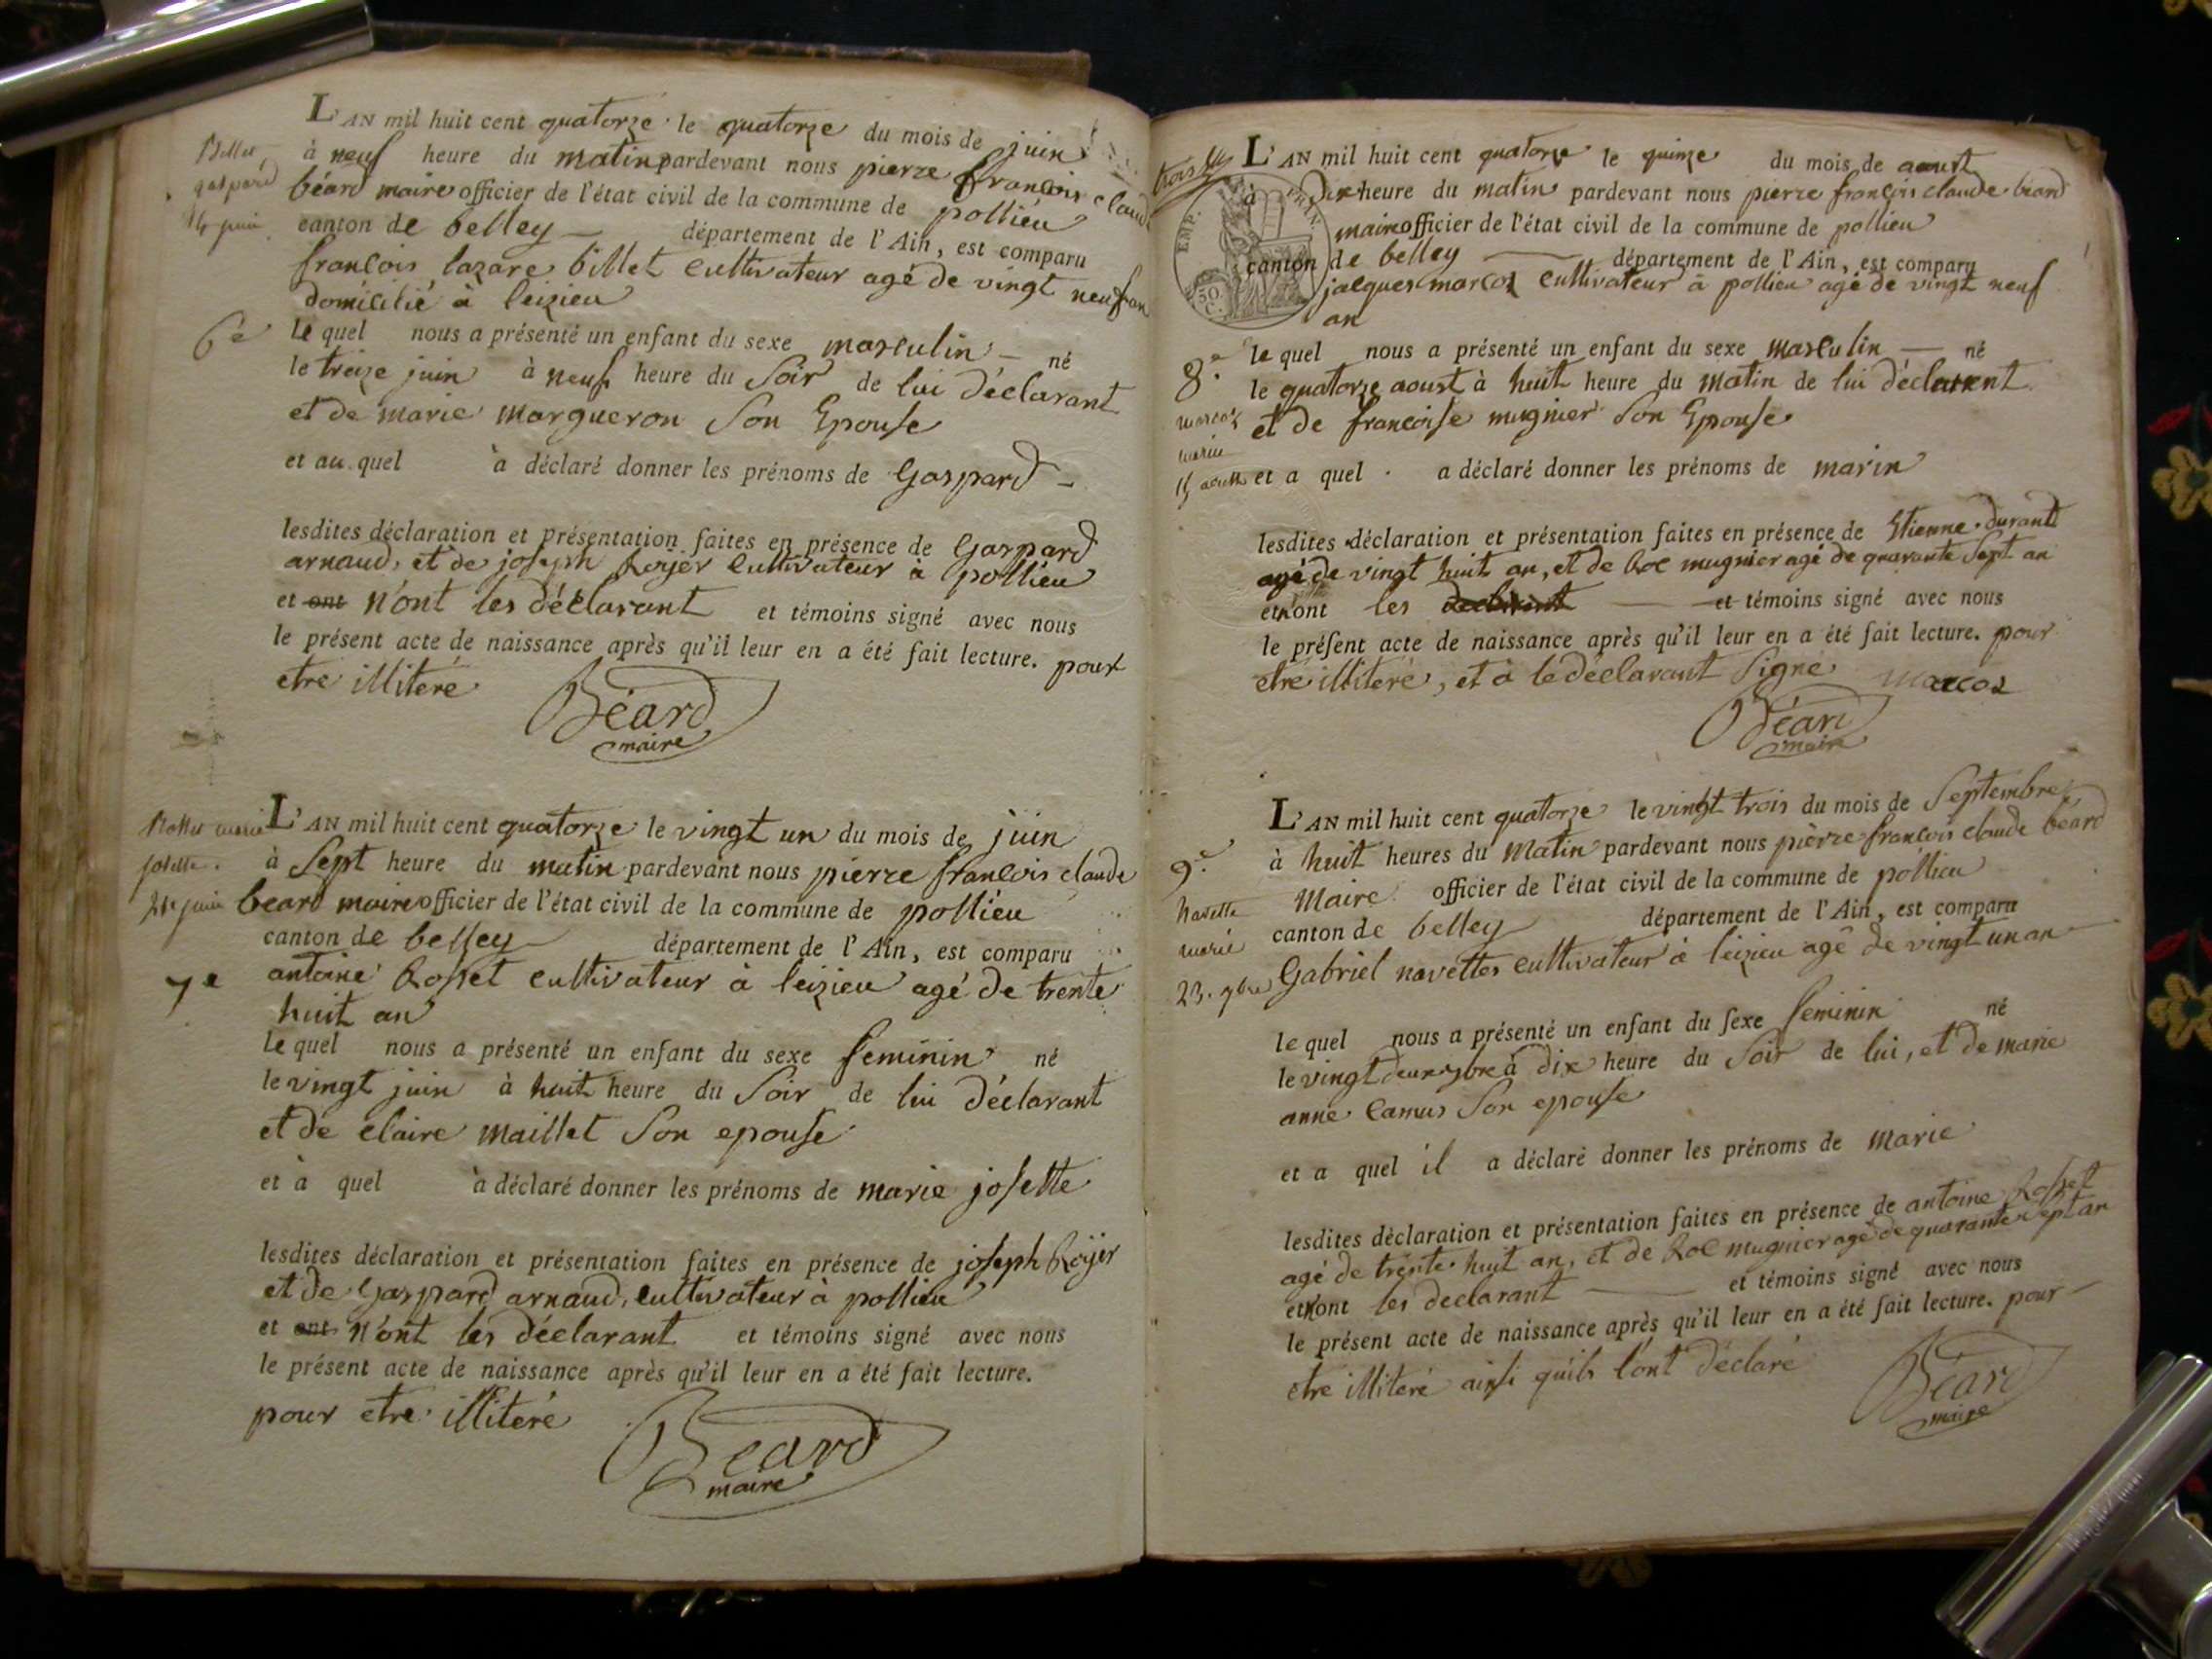 L'AN mil huit cent quatorze le quatorze du mois de juin
à neuf heure du matin pardevant nous pierre françois claude
béard maire officier de l'état civil de la commune de pollieu
canton de belley département de l'Ain, est comparu
françois lazare billet cultivateur agé de vingt neuf an
domicilié à leizieu
Billet
gaspard
14 juin
6e
le quel nous a présenté un enfant du sexe masculin né
le treize juin à neuf heure du soir de lui déclarant
et de marie margueron son epouse
et au quel à déclaré donner les prénoms de Gaspard
lesdites déclaration et présentation faites en présence de Gaspard
arnaud, et de joseph Royer cultivateur à pollieu
et ont n'ont les déclarant et témoins signé avec nous
le présent acte de naissance après qu'il leur en a été fait lecture. pour
etre illiteré
Béard
maire
L'AN mil huit cent quatorze le vingt un du mois de juin
à sept heure du matin pardevant nous pierre françois claude
beard maire officier de l'état civil de la commune de pollieu
canton de belley département de l'Ain, est comparu
antoine Rosset cultivateur à leizieu agé de trente
huit an
Rosset marie
josette
21 juin
7e
le quel nous a présenté un enfant du sexe feminin né
le vingt juin à huit heure du soir de lui déclarant
et de claire maillet son epouse
et à quel à déclaré donner les prénoms de marie josette
lesdites déclaration et présentation faites en présence de joseph Royer
et de Gaspard arnaud, cultivateur à pollieu
et ont n'ont les déclarant et témoins signé avec nous
le présent acte de naissance après qu'il leur en a été fait lecture.
pour etre illiteré
Beard
maire
L'AN mil huit cent quatorze le quinze du mois de aoust
à dix heure du matin pardevant nous pierre françois claude béard
maire officier de l'état civil de la commune de pollieu
canton de belley département de l'Ain, est comparu
jacques marcoz cultivateur à pollieu agé de vingt neuf
an
EMP.
50
C.
8e
marcoz
marin
15 aoust
le quel nous a présenté un enfant du sexe masculin né
le quatorze aoust à huit heure du matin de lui déclarent
et de francoise mugnier son Epouse
et a quel a déclaré donner les prénoms de marin
lesdites déclaration et présentation faites en présence de Etienne durand
agé de vingt huit an, et de Roc mugnier agé de quarante sept an
et n'ont les declarant et témoins signé avec nous
le présent acte de naissance après qu'il leur en a été fait lecture. pour
etre illiteré, et à le déclarant signé marcoz
Béard
maire
L'AN mil huit cent quatorze le vingt trois du mois de septembre
à huit heures du matin pardevant nous pierre françois claude béard
Maire officier de l'état civil de la commune de pollieu
canton de belley département de l'Ain, est comparu
Gabriel navettes cultivateur à leizieu agé de vingt un an
9e
Navette
marie
23. 7bre
le quel nous a présenté un enfant du sexe feminin né
le vingt deux 7bre à dix heure du soir de lui, et de marie
anne camus son epouse
et a quel il a déclaré donner les prénoms de marie
lesdites déclaration et présentation faites en présence de antoine Rosset
agé de trente huit an, et de Roc mugnier agé de quarante sept an
et n'ont les declarant et témoins signé avec nous
le présent acte de naissance après qu'il leur en a été fait lecture. pour
etre illiteré ainsi quils l'ont déclaré
Béard
maire